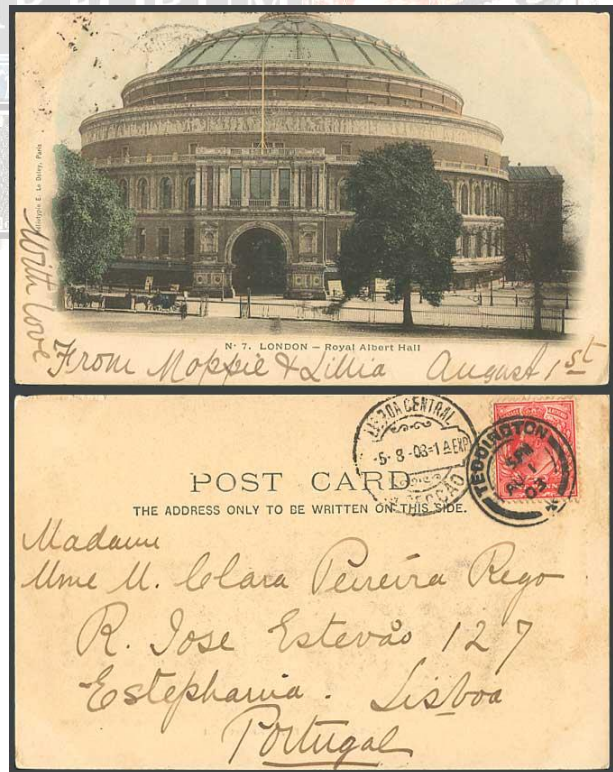 Heliotypie E. Le Deley, Paris
With love
N° 7. LONDON – Royal Albert Hall
From Moppie & Lillia August 1st
LISBOA CENTRAL
5-8-03-1A EXP
SECCAO
TEDDINGTON
5 PM
AU 1
03
POST CARD.
THE ADDRESS ONLY TO BE WRITTEN ON THIS SIDE.
Madame
Mme M. Clara Pereira Rego
R. Jose Estevão 127
Estephania. Lisboa
Portugal